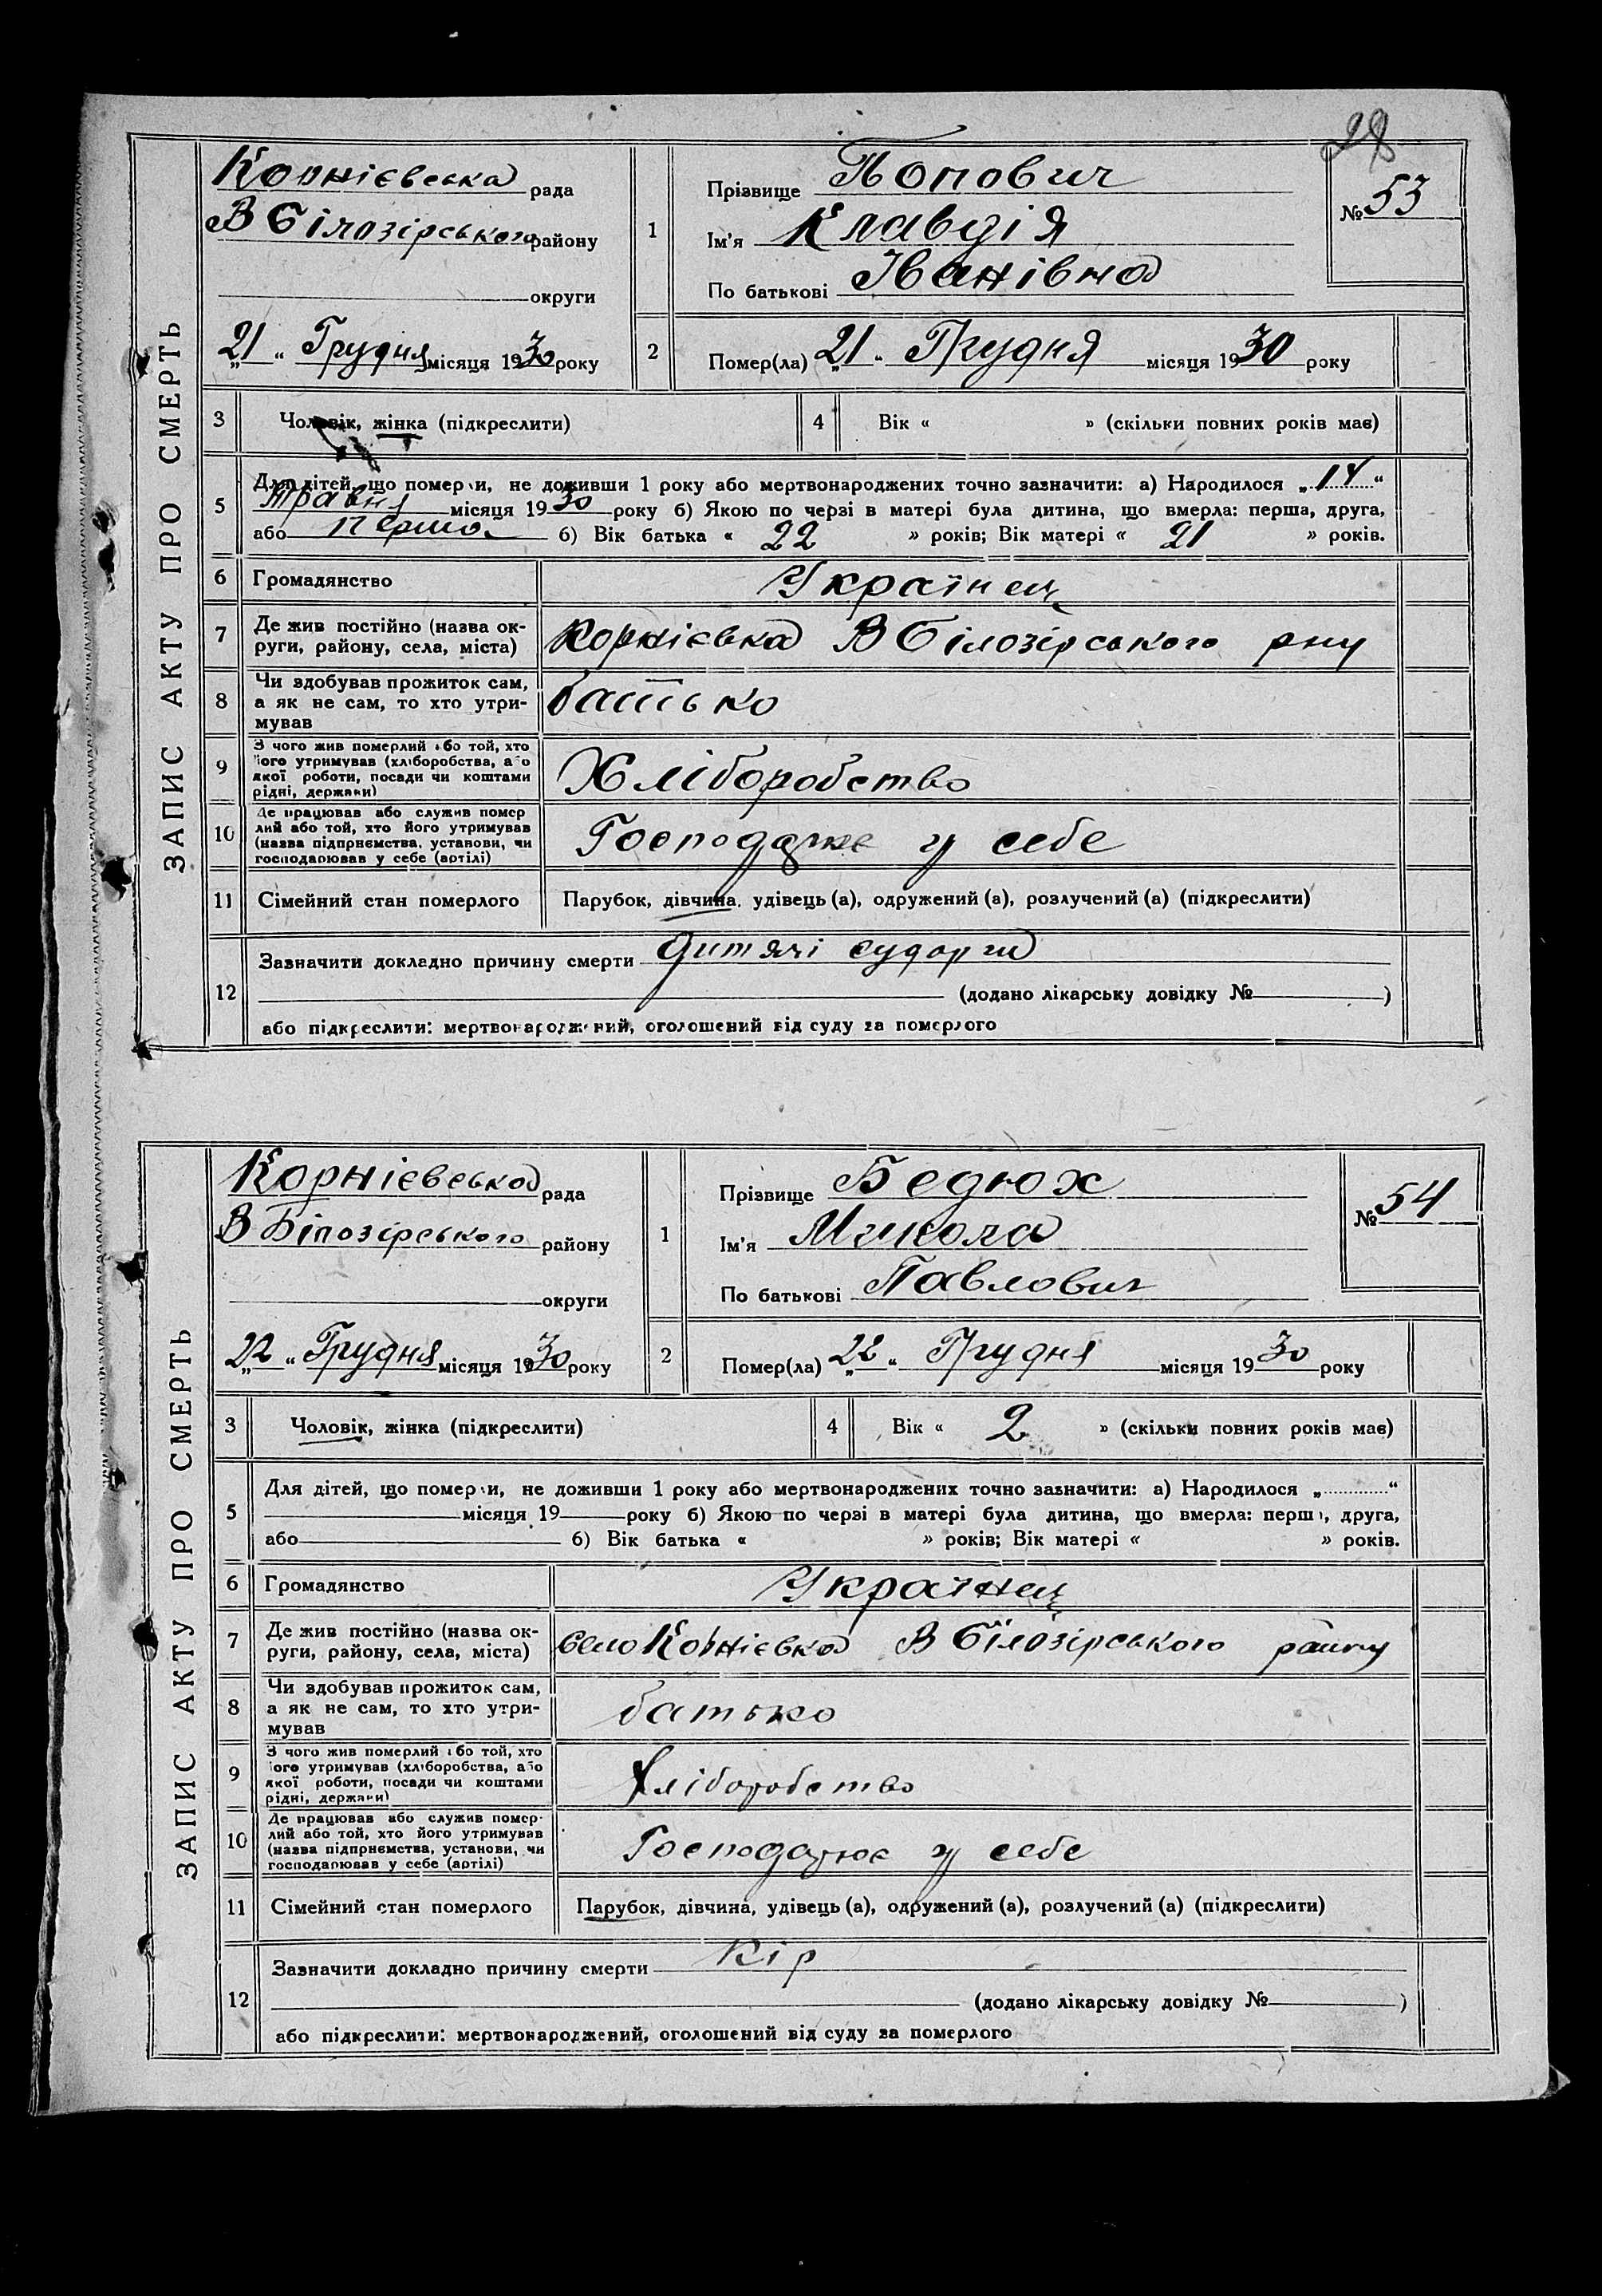 28
ЗАПИС АКТУ ПРО СМЕРТЬ
Корнієвська рада
В Білозірського району
округи
„21“ Грудня місяця 1930 року
1
Прізвище Попович
Ім'я Клавдія
По батькові Іванівна
№ 53
2
Помер(ла) „21“ Грудня місяця 1930 року
3 Чоловік, жінка (підкреслити)
4 Вік « » (скільки повних років має)
5 Для дітей, що померли, не доживши 1 року або мертвонароджених точно зазначити: а) Народилося „14“
травня місяця 1930 року б) Якою по черзі в матері була дитина, що вмерла: перша, друга,
або перша б) Вік батька « 22 » років; Вік матері « 21 » років.
6 Громадянство Українец
7 Де жив постійно (назва ок-
руги, району, села, міста) Корнієвка В Білозірського рну
8 Чи здобував прожиток сам,
а як не сам, то хто утри-
мував батько
9 З чого жив померлий або той, хто
його утримував (хліборобства, або
якої роботи, посади чи коштами
рідні, держави) Хліборобство
10 Де працював або служив помер
лий або той, хто його утримував
(назва підприємства, установи, чи
господарював у себе (артілі) Господарює у себе
11 Сімейний стан померлого Парубок, дівчина, удівець (а), одружений (а), розлучений (а) (підкреслити)
12 Зазначити докладно причину смерти дитячі судорги
(додано лікарську довідку № )
або підкреслити: мертвонароджений, оголошений від суду за померлого
ЗАПИС АКТУ ПРО СМЕРТЬ
Корнієвська рада
В Білозірського району
округи
„22“ Грудня місяця 1930 року
1
Прізвище Бедюх
Ім'я Микола
По батькові Павлович
№ 54
2
Помер(ла) „22“ Грудня місяця 1930 року
3 Чоловік, жінка (підкреслити)
4 Вік « 2 » (скільки повних років має)
5 Для дітей, що померли, не доживши 1 року або мертвонароджених точно зазначити: а) Народилося „ “
місяця 19 року б) Якою по черзі в матері була дитина, що вмерла: перша, друга,
або б) Вік батька « » років; Вік матері « » років.
6 Громадянство Українец
7 Де жив постійно (назва ок-
руги, району, села, міста) село Корнієвка В Білозірського раину
8 Чи здобував прожиток сам,
а як не сам, то хто утри-
мував батько
9 З чого жив померлий або той, хто
його утримував (хліборобства, або
якої роботи, посади чи коштами
рідні, держави) Хліборобство
10 Де працював або служив помер-
лий або той, хто його утримував
(назва підприємства, установи, чи
господарював у себе (артілі) Господарює у себе
11 Сімейний стан померлого Парубок, дівчина, удівець (а), одружений (а), розлучений (а) (підкреслити)
12 Зазначити докладно причину смерти Кір
(додано лікарську довідку № )
або підкреслити: мертвонароджений, оголошений від суду за померлого